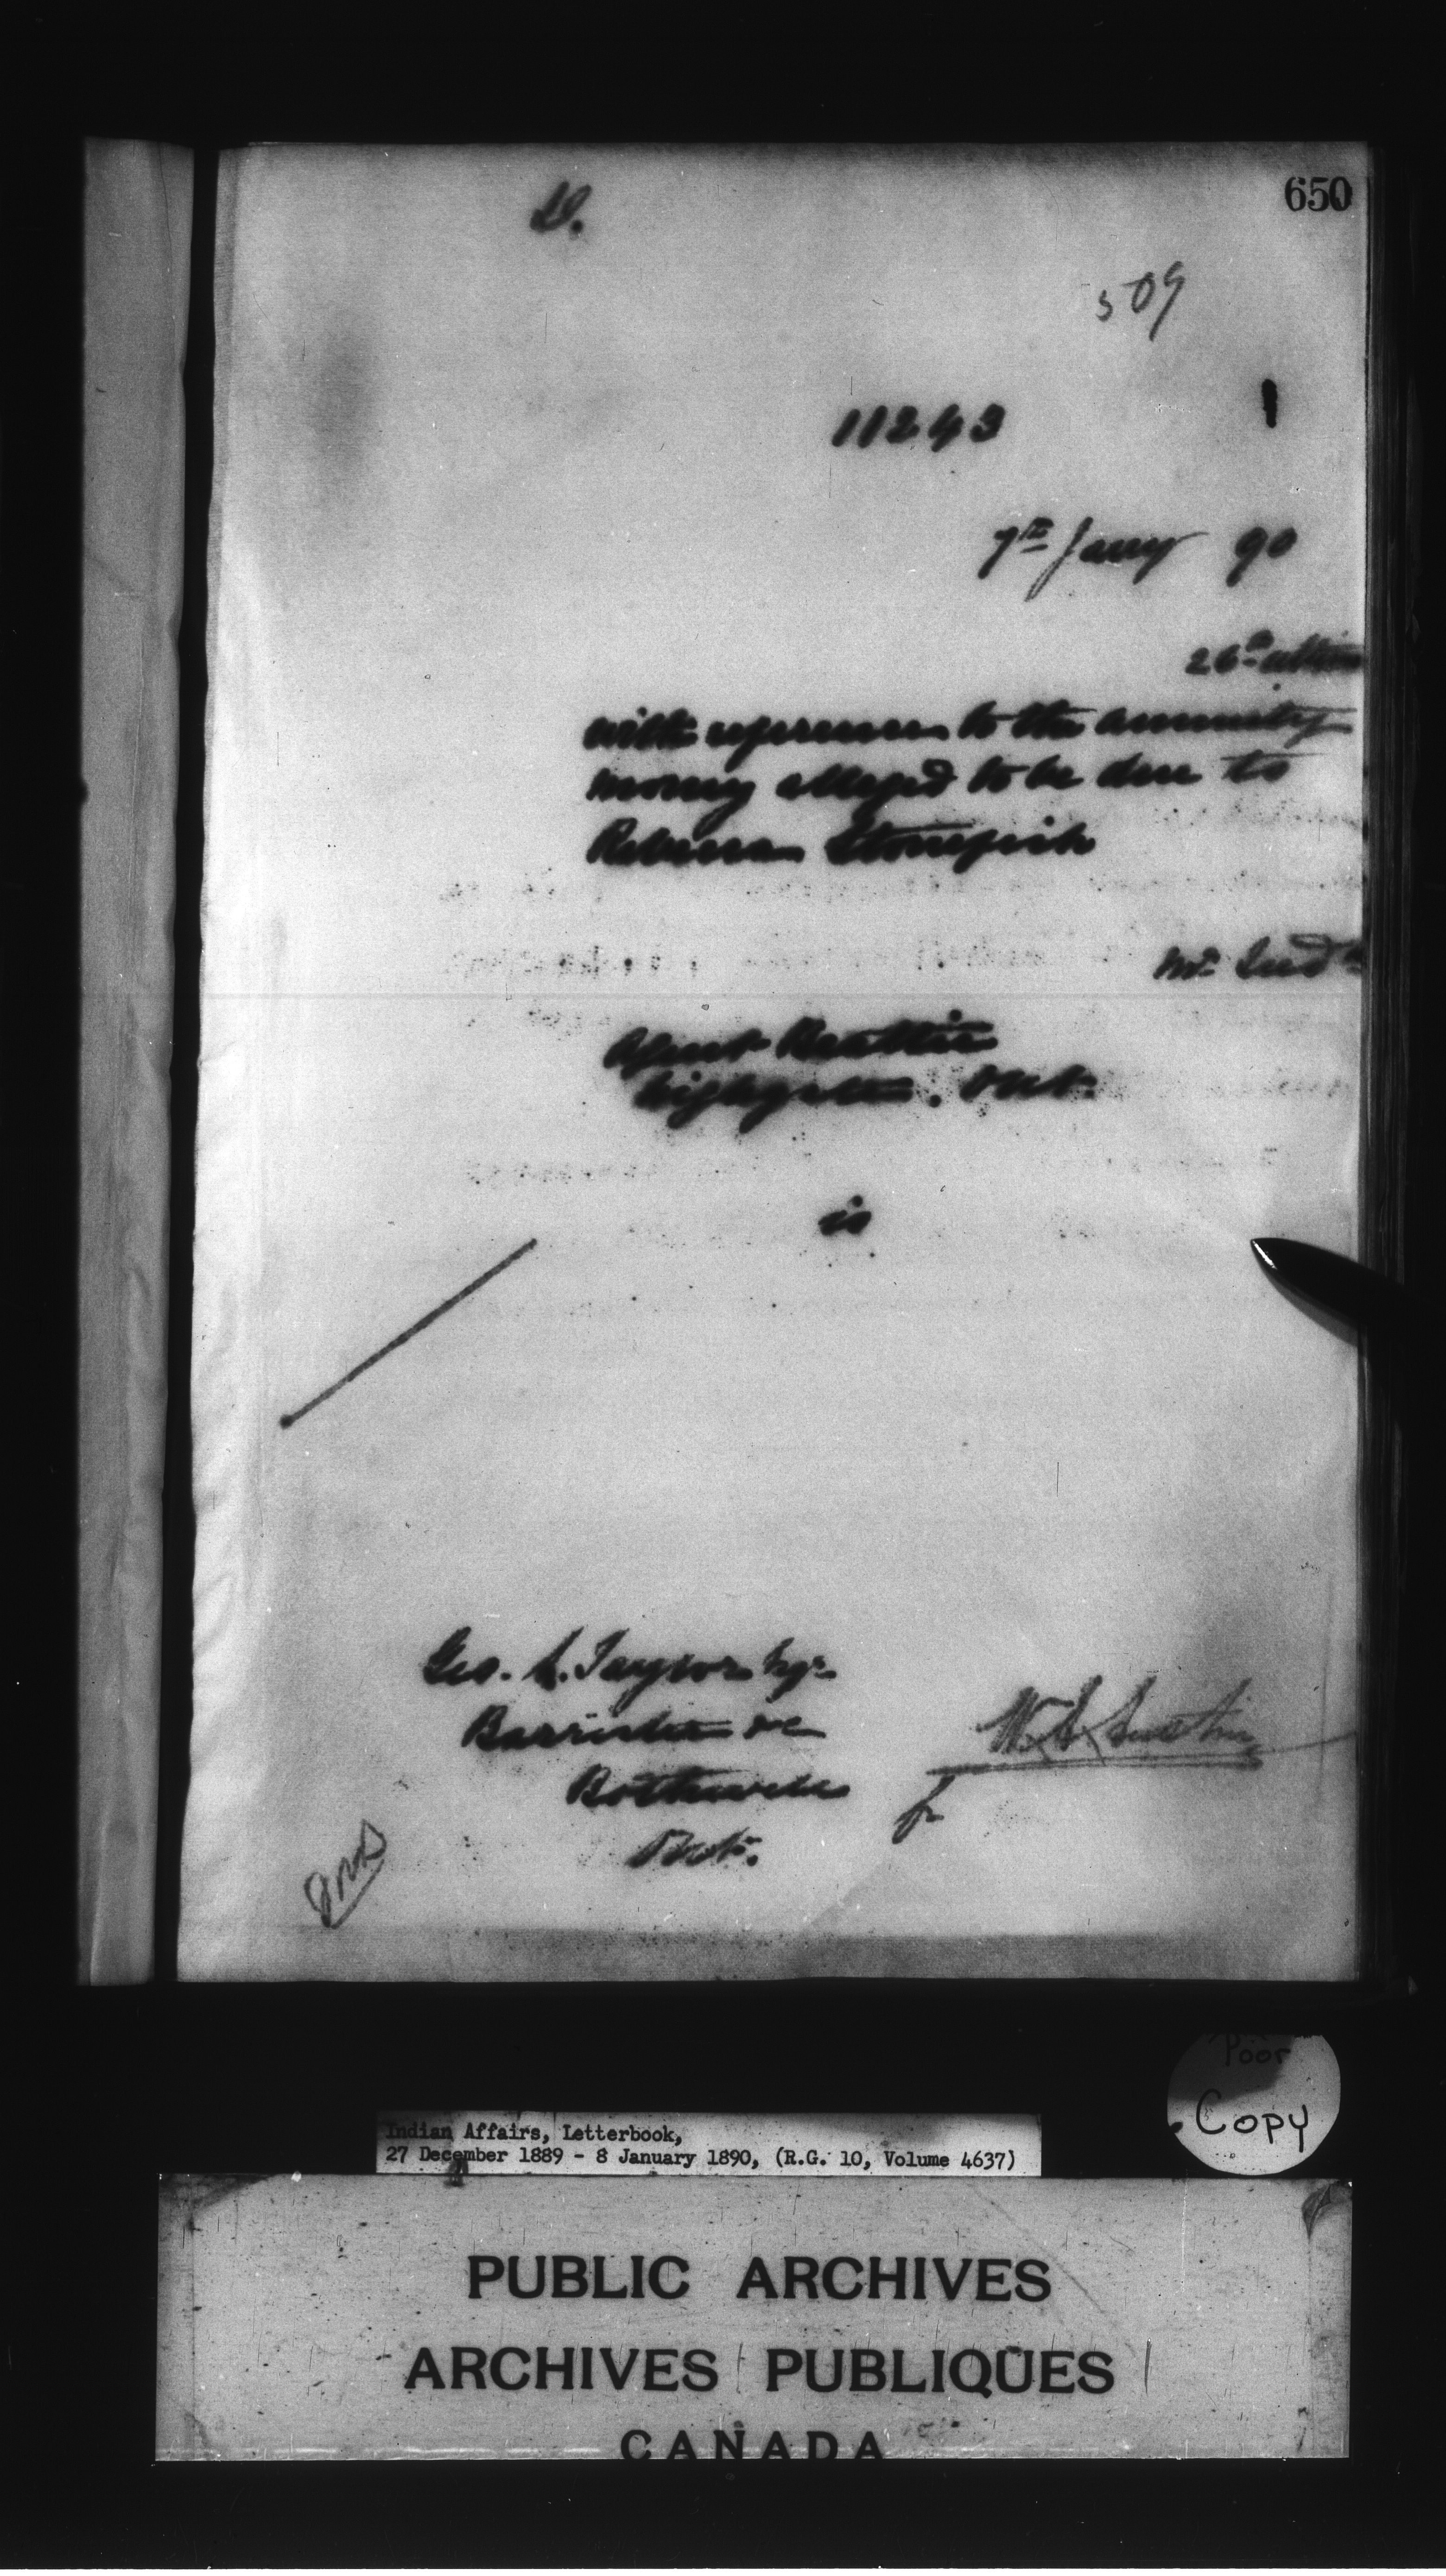 D.
650
509
11243
7th Jany 90
26th ultimo
with reference to the annuity
money alleged to be due to
Rebecca Stonefish
Mr Ind
Agent Beattie
Highgate. Ont.
is
Geo. S. Taylor Esqr
Barrister &c
Bothwell
Ont.
Poor
Copy
Indian Affairs, Letterbook,
27 December 1889 - 8 January 1890, (R.G. 10, Volume 4637)
PUBLIC ARCHIVES
ARCHIVES PUBLIQUES
CANADA